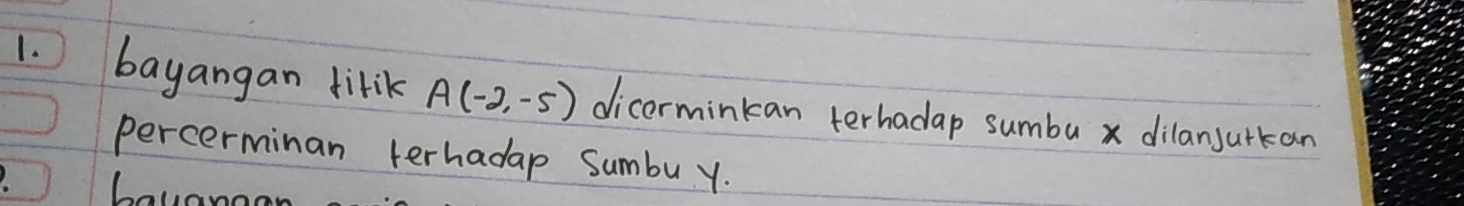 1. bayangan titik A(-2,-5) dicerminkan terhadap sumbu x dilanjutkan
percerminan terhadap sumbu y.
bayangan